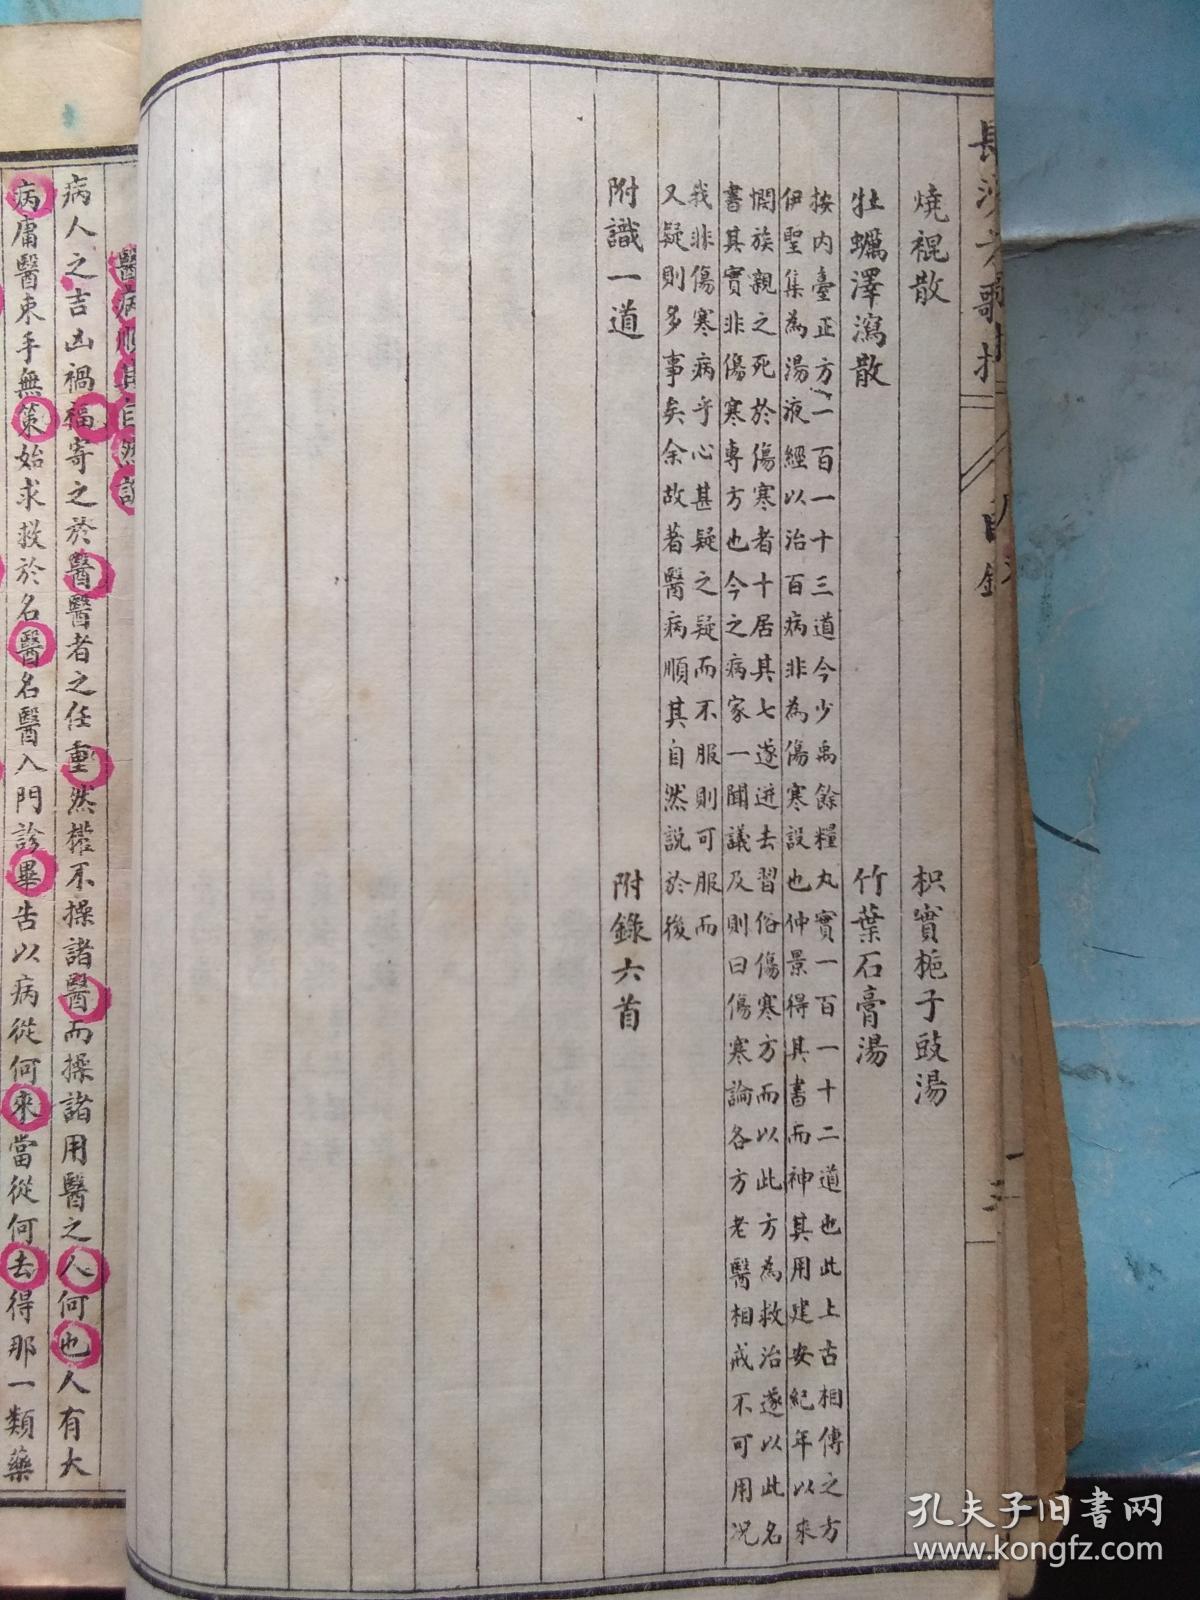 長沙方歌括 目錄
燒裩散 枳實梔子豉湯
牡蠣澤瀉散 竹葉石膏湯
按內臺正方一百一十三道今少禹餘糧丸實一百一十二道也此上古相傳之方
伊聖集為湯液經以治百病非為傷寒設也仲景得其書而神其用建安紀年以來
憫族親之死於傷寒者十居其七遂迸去習俗傷寒方而以此方為救治遂以此名
書其實非傷寒專方也今之病家一聞議及則曰傷寒論各方老醫相戒不可用況
我非傷寒病乎心甚疑之疑而不服則可服而
又疑則多事矣余故著醫病順其自然説於後
附識一道 附錄六首
醫病順其自然説
病人之吉凶禍福寄之於醫醫者之任重然權不操諸醫而操諸用醫之人何也人有大
病庸醫束手無策始求救於名醫名醫入門診畢告以病從何來當從何去得那一類藥
孔夫子旧书网
www.kongfz.com